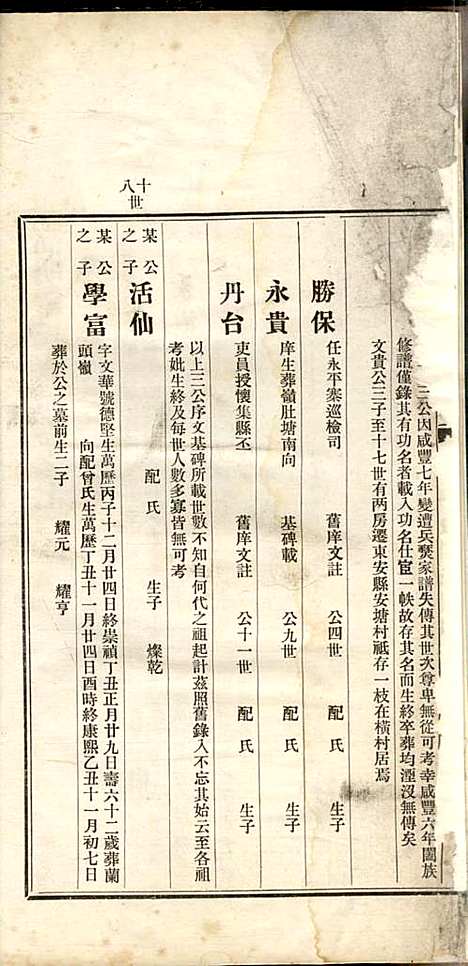 三公因咸豐七年變遭兵燹家譜失傳其世次尊卑無從可考幸咸豐六年闔族
修譜僅錄其有功名者載入功名仕宦一帙故存其名而生終卒葬均湮沒無傳矣
文貴公三子至十七世有两房遷東安縣安塘村祗存一枝在橫村居焉
勝保 任永平寨巡檢司 舊庠文註 公四世 配 氏 生子
永貴 庠生葬嶺肚塘南向 基碑載 公九世 配 氏 生子
丹台 吏員授懷集縣丕 舊庠文註 公十一世 配 氏 生子
以上三公序文基碑所載世數不知自何代之祖起計茲照舊錄入不忘其始云至各祖
考妣生終及每世人數多寡皆無可考
十八世
某公之子 活仙 配 氏 生子 燦乾
某公之子 學富 字文華號德堅生萬歷丙子十二月廿四日終崇禎丁丑正月廿九日壽六十二歲葬蘭
頭嶺 向配曾氏生萬歷丁丑十一月廿四日酉時終康熙乙丑十一月初七日
葬於公之墓前生二子 耀元 耀亨